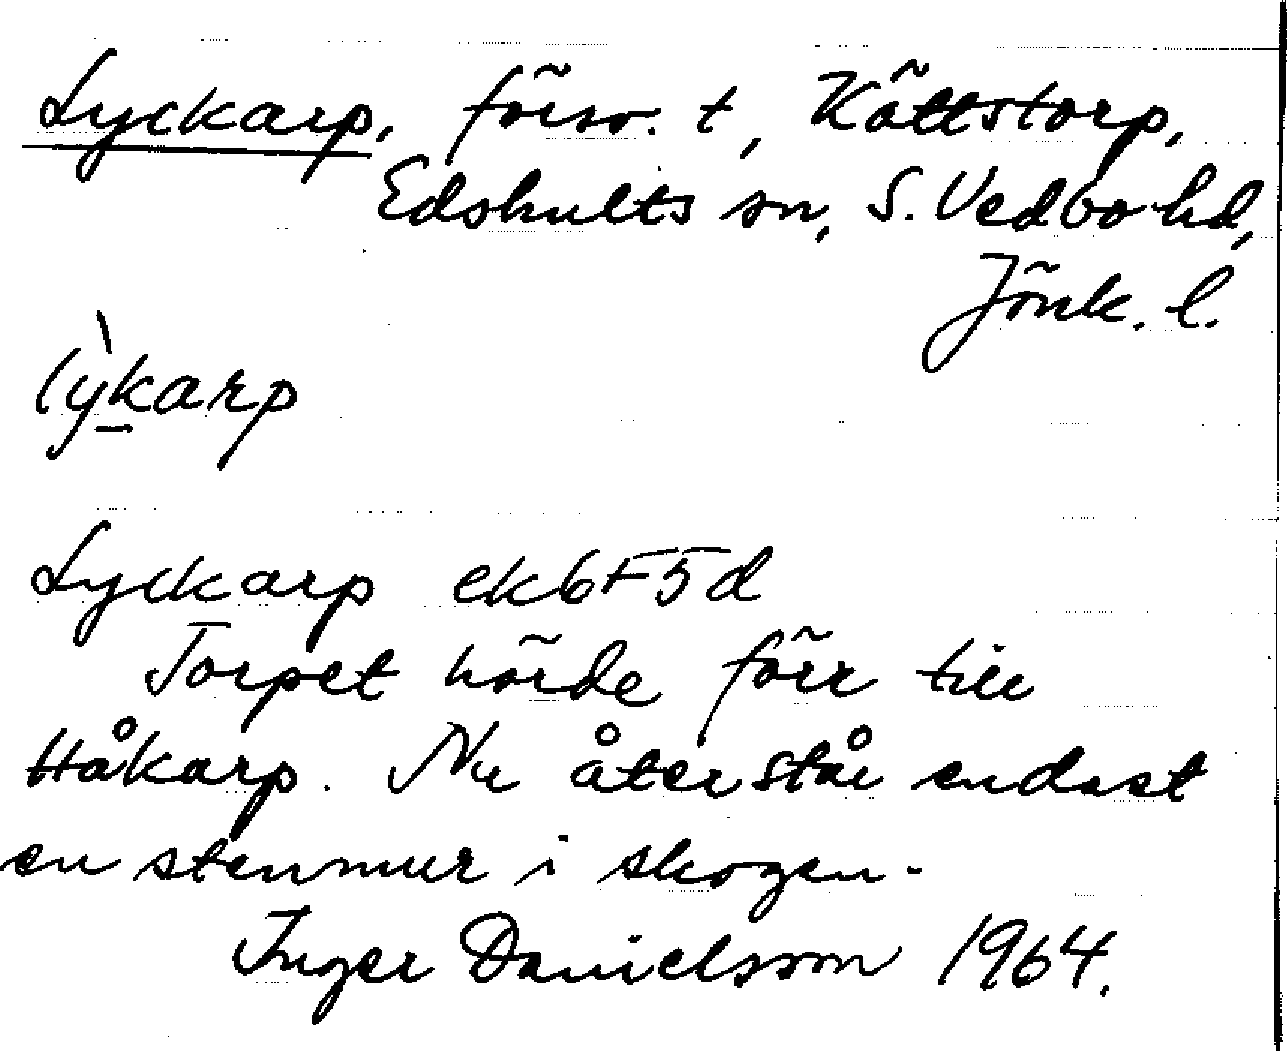 Lyckarp, försv. t, Kättstorp,
Edshults sn, S. Vedbo hd,
Jönk. l.
lỳk̲arp
Lyckarp ek6F5d
Torpet hörde förr till
Håkarp. Nu återstår endast
en stenmur i skogen.
Inger Danielsson 1964.